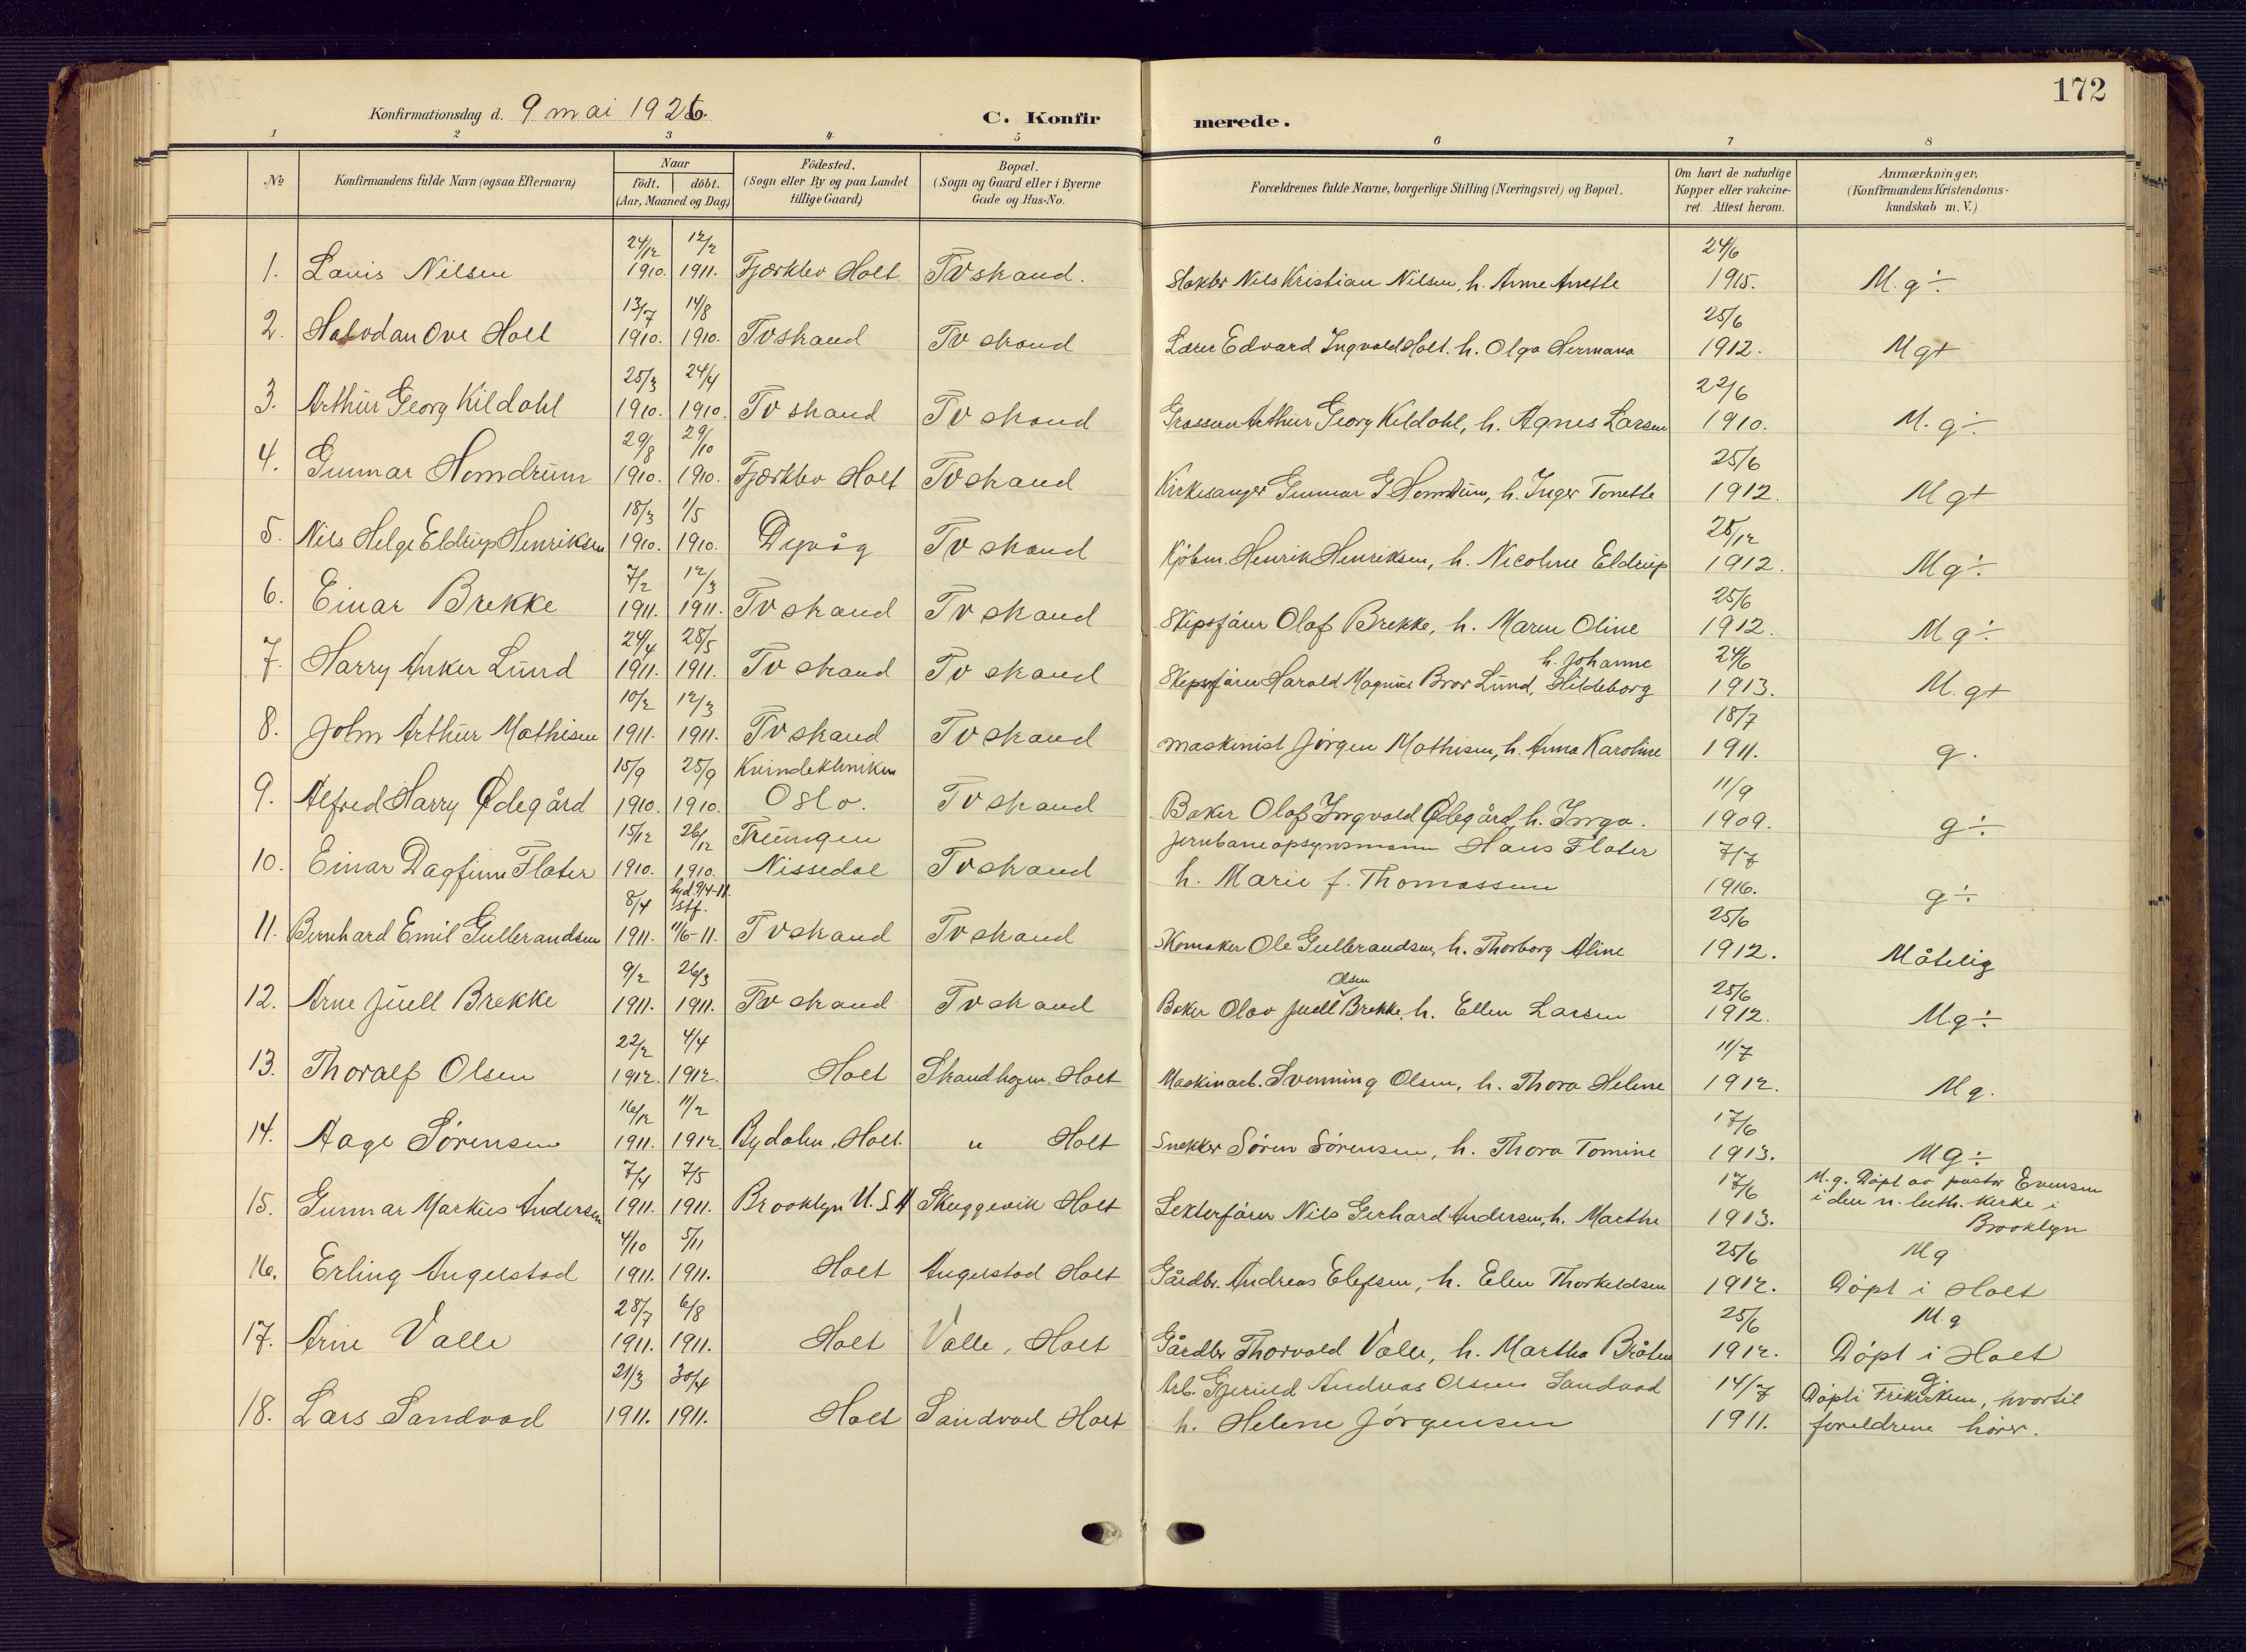 172
Konfirmationsdag d. 9 mai 1926.
C. Konfirmerede.
1 2 3 4 5 6 7 8
No
Konfirmandens fulde Navn (ogsaa Efternavn)
Naar
födt. döbt.
(Aar, Maaned og Dag)
Födested.
(Sogn eller By og paa Landet
tillige Gaard)
Bopæl.
(Sogn og Gaard eller i Byerne
Gade og Hus-No.
Forældrenes fulde Navne, borgerlige Stilling (Næringsvei) og Bopæl.
Om havt de naturlige
Kopper eller vakcine-
ret. Attest herom.
Anmærkninger,
(Konfirmandens Kristendoms-
kundskab m. V.)
24/12 12/2 24/6
1. Lauis Nilsen 1910. 1911. Fjærklev Holt Tvskand. Slakter Nils Kristian Nilsen, h. Anne Anette 1915. M. g ÷
13/7 14/8 25/6
2. Halvdan Ove Holt 1910. 1910. Tvskand Tvskand Lærer Edvard Ingvald Holt. h. Olga Hermana 1912. Mg+
25/3 24/4 22/6
3. Arthur Georg Kildahl 1910. 1910. Tvskand Tvskand Grosserer Arthur Georg Kildahl, h. Agnes Larsen 1910. M. g ÷
29/8 29/10 25/6
4. Gunnar Homdrum 1910. 1910. Fjærklev Holt Tvskand Kirkesanger Gunnar G. Homdrum, h. Inger Tonette 1912. Mg+
18/3 1/5 28/12
5. Nils Helge Eldrup Henriksen 1910. 1910. Dyvåg Tvskand Kjøbm. Henrik Henriksen, h. Nicoline Eldrup 1912. Mg ÷
7/2 12/3 25/6
6. Einar Brekke 1911. 1911. Tvskand Tvskand Skipsfører Olaf Brekke, h. Maren Oline 1912. Mg ÷
24/4 28/5 h. Johanne 24/6
7. Harry Anker Lund 1911. 1911. Tvskand Tvskand Skipsfører Harald Magnus Bror Lund, Hildeborg 1913. M. g+
10/2 12/3 18/7
8. John Arthur Mathisen 1911. 1911. Tvskand Tvskand Maskinist Jørgen Mathisen, h. Anna Karoline 1911. g.
15/9 25/9 Kvindekliniken 11/9
9. Alfred Harry Ødegård 1910. 1910. Oslo. Tvskand Baker Olaf Ingvald Ødegård, h. Inga. 1909. g ÷
15/12 26/12 Treungen Jernbaneopsynsmann Hans Flater 7/7
10. Einar Dagfinn Flater 1910. 1910. Nissedal Tvskand h. Marie f. Thomassen 1916. g ÷
8/4 hjd 9/4-11. stf. 25/6
11. Bernhard Emil Gulbrandsen 1911. 11/6-11. Tvskand Tvskand Skomaker Ole Gulbrandsen, h. Thorborg Aline 1912. Måtelig
9/2 26/3 Olsen 25/6
12. Arne Juell Brekke 1911. 1911. Tvskand Tvskand Baker Olav Juell Brekke, h. Ellen Larsen 1912. M.g ÷
22/2 4/4 11/7
13. Thoralf Olsen 1912. 1912. Holt Skandhagen. Holt Maskinarb. Svenning Olsen, h. Thora Helene 1912. Mg.
16/12 11/2 17/6
14. Aage Sørensen 1911. 1912. Bydalen, Holt. " Holt Snekker Søren Sørensen, h. Thora Tomine 1913. MG ÷
7/4 7/5 17/6 M.g. Døpt av pastor Evensen
15. Gunnar Markus Andersen 1911. 1911. Brooklyn U.S.A Skuggevik Holt Lekterfører Nils Gerhard Andersen, h. Marthe 1913. i den n. luth. Kirke i
Brooklyn
4/10 5/11 25/6 Mg
16. Erling Angelstad 1911. 1911. Holt Angelstad Holt Gårdbr. Andreas Elefsen, h. Elen Thorkeldsen 1912. Døpt i Holt
28/7 6/8 25/6 M.g
17. Arne Valle 1911. 1911. Holt Valle, Holt Gårdbr Thorvald Valle, h. Martha Bråten 1912. Døpt i Holt
21/3 30/4 Arb. Gjeruld Andreas Olsen Sandvad 14/7 g.
Døpt i Frikirken, hvortil
18. Lars Sandvad 1911. 1911. Holt Sandvad Holt h. Helene Jørgensen 1911. foreldrene hører.